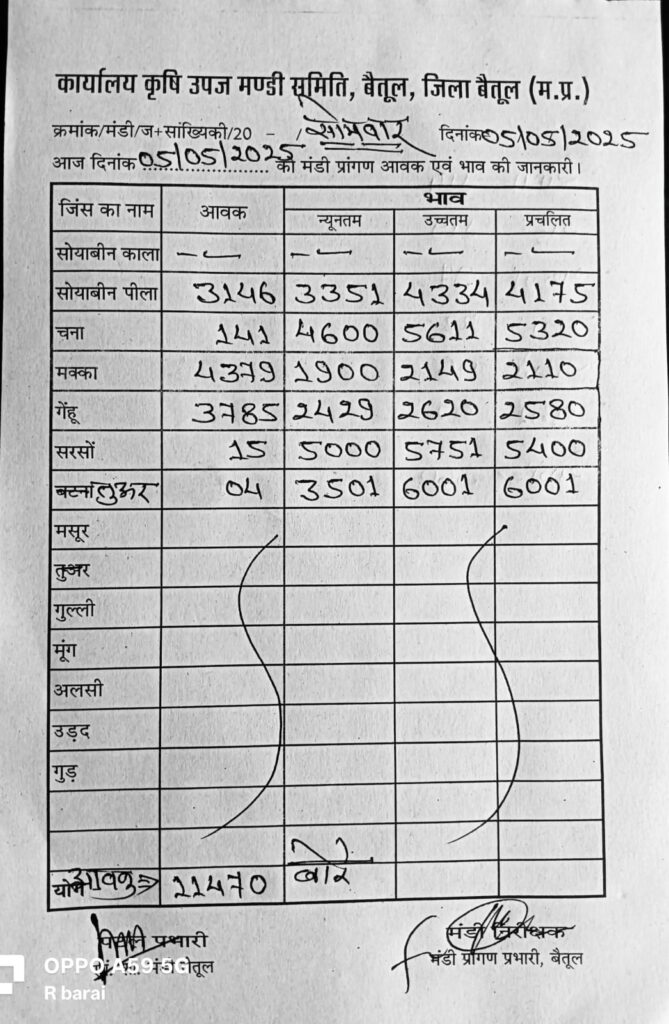 कार्यालय कृषि उपज मण्डी समिति, बैतूल, जिला बैतूल (म.प्र.)
क्रमांक/मंडी/ज+सांख्यिकी/20 - / सोमवार दिनांक 05/05/2025
आज दिनांक 05/05/2025 को मंडी प्रांगण आवक एवं भाव की जानकारी।
जिंस का नाम आवक भाव
न्यूनतम उच्चतम प्रचलित
सोयाबीन काला
सोयाबीन पीला 3146 3351 4334 4175
चना 141 4600 5611 5320
मक्का 4379 1900 2149 2110
गेंहू 3785 2429 2620 2580
सरसों 15 5000 5751 5400
तुअर 04 3501 6001 6001
मसूर
तुअर
गुल्ली
मूंग
अलसी
उड़द
गुड़
आवक 11470 बोरे
प्रभारी मंडी निरीक्षक
बैतूल मंडी प्रांगण प्रभारी, बैतूल
OPPO A59 5G
R barai